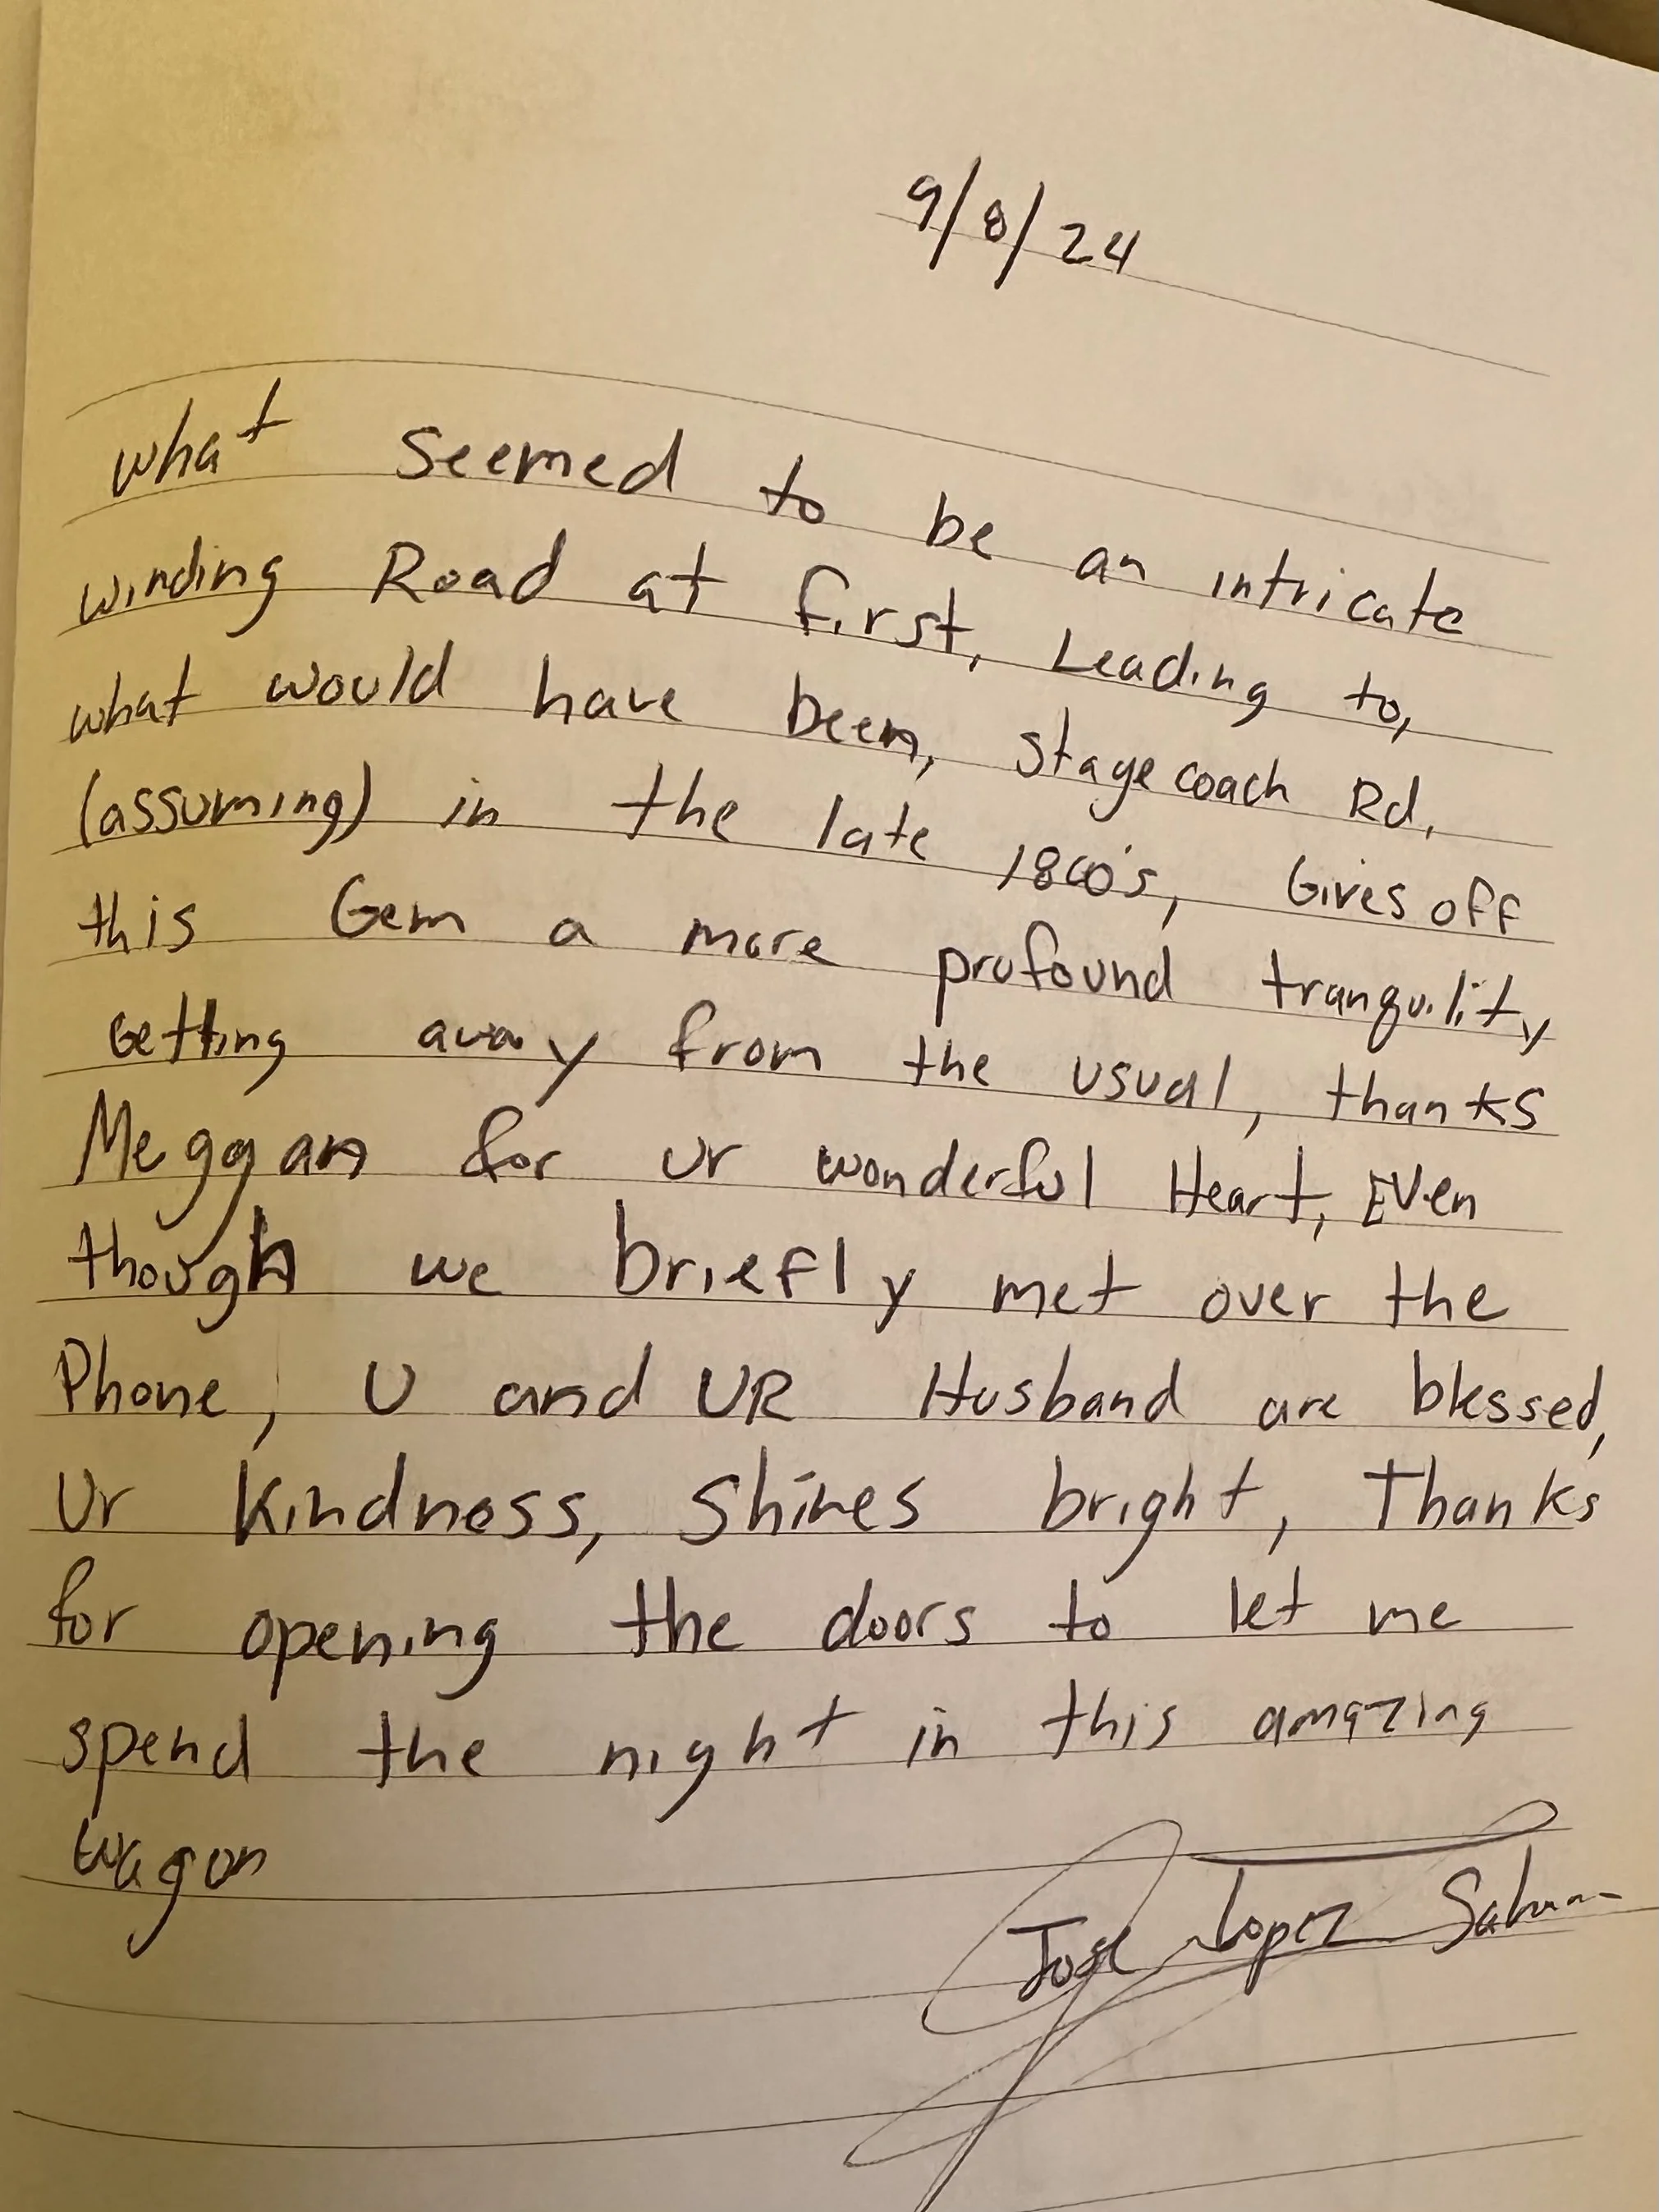 9/8/24
what seemed to be an intricate
winding Road at first, Leading to,
what would have been, stagecoach Rd,
(assuming) in the late 1800's, Gives off
this Gem a more profound tranquility
Getting away from the usual, thanks
Meggan for ur wonderful Heart, Even
though we briefly met over the
Phone, U and UR Husband are blessed,
Ur Kindness, Shines bright, Thanks
for opening the doors to let me
spend the night in this amazing
wagon
Jose Lopez